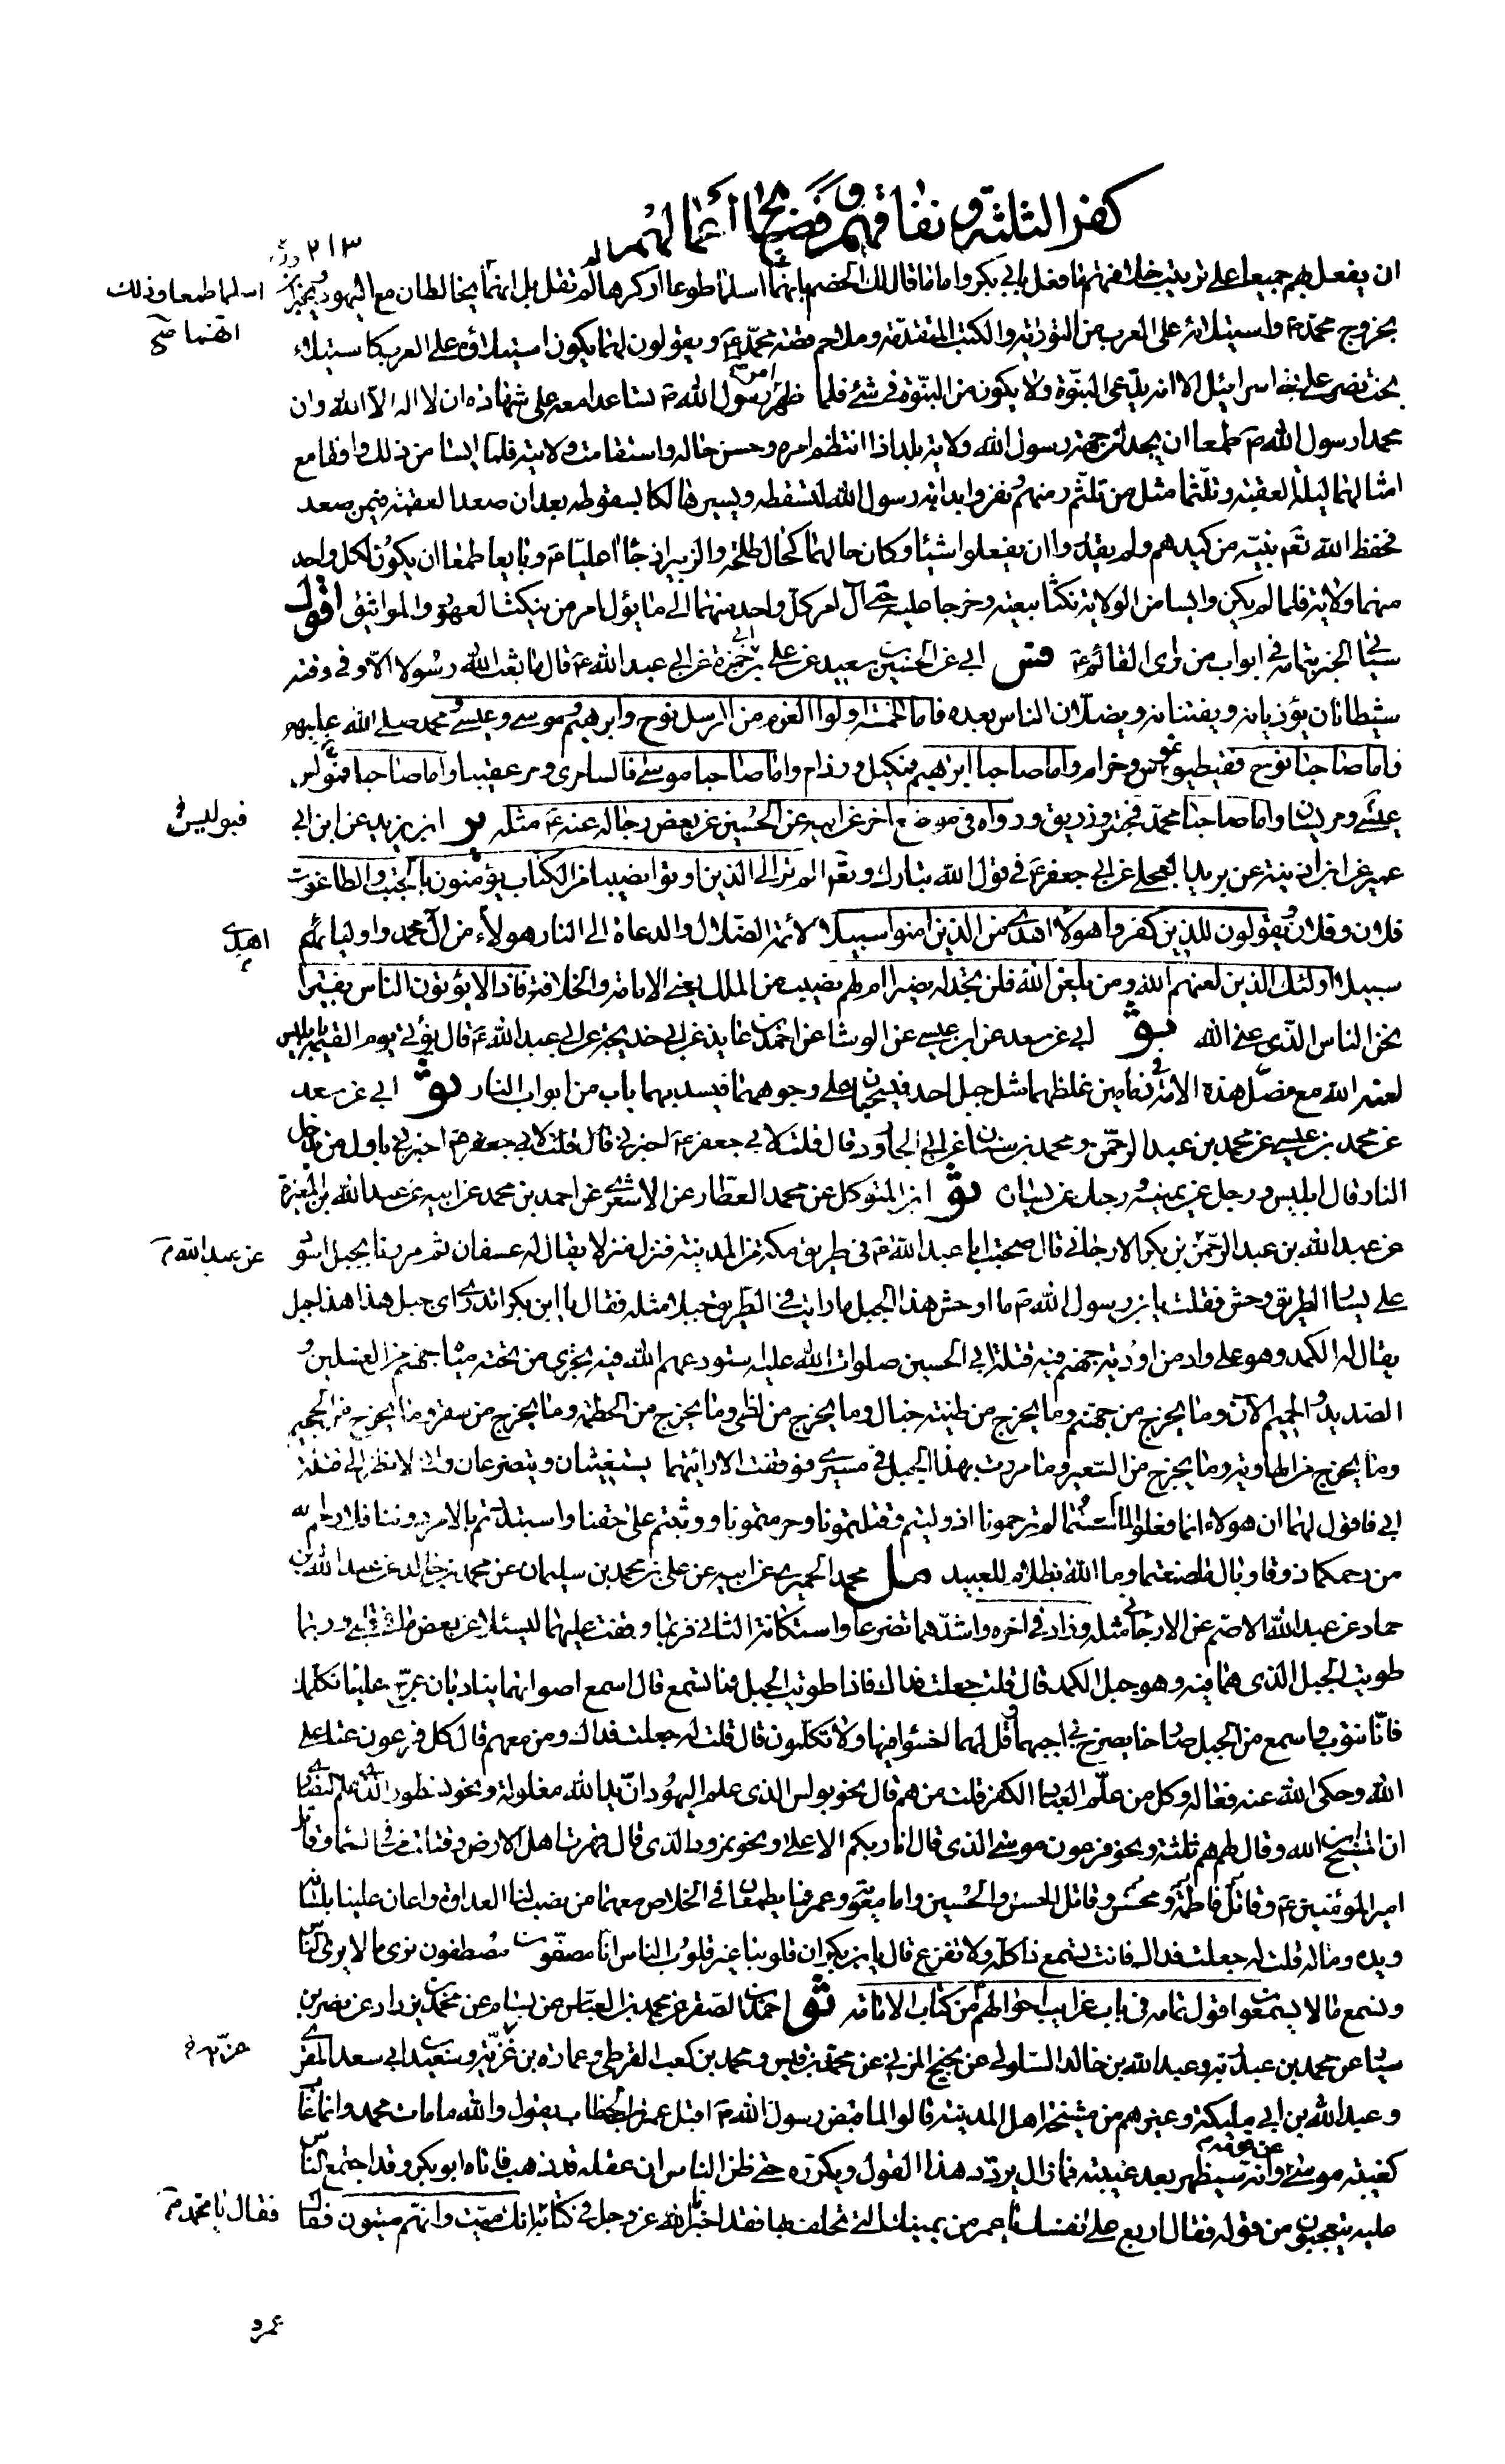 كفر الثلثة و نفاقهم و فضايح أعمالهم
٢١٣
ان يفعل بهم جميعا على ترتيب خلافتهم ما فعل بابي بكر واما ما قال لك الخصم بانهما اسلما طوعا او كرها لم لم تقل بل انهما اسلما طمعا وذلك انهما يخالطان مع اليهود ويخبران
بخروج محمد ص واستيلائه على العرب من التورية والكتب المتقدمة وملاحم قصة محمد ع ويقولون لهما يكون استيلاؤه على العرب كاستيلاء
بخت نصر على بنى اسرائيل الا انه يدعى النبوة ولا يكون من النبوة فى شئ فلما ظهر امر رسول الله ص تساعدا معه على شهادة ان لا اله الا الله وان
محمدا رسول الله ص طمعا ان يجدا من جهة رسول الله ولاية بلد اذا انتظم امره وحسن حاله واستقامت ولايته فلما ايسا من ذلك وافقا مع
امثالهما ليلة العقبة وتلثما مثل من تلثم منهم ونفروا بدابة رسول الله لتسقطه ويسير هالكا بسقوطه بعد ان صعد العقبة فيمن صعد
فحفظ الله تع نبيه من كيدهم ولم يقدروا ان يفعلوا شيئا وكان حالهما كحال طلحة والزبير اذ جاءا عليا ع وبايعاه طمعا ان يكون لكل واحد
منهما ولاية فلما لم يكن وايسا من الولاية نكثا بيعته وخرجا عليه حتى آل امر كل واحد منهما الى ما يؤل امر من ينكث العهود والمواثيق اقول
سياتى الخبر بتمامه فى ابواب من راى القائم ع فس ابى عن الحسين بن سعيد عن على بن ابى حمزة عن ابى عبد الله ع قال ما بعث الله رسولا الا وفى وقته
شيطانان يؤذيانه ويفتنانه ويضلان الناس بعده فاما الخمسة اولوا العزم من الرسل نوح وابرهيم وموسى وعيسى ومحمد صلى الله عليهم
واما صاحبا نوح ففيطيفوس وخرام واما صاحبا ابراهيم فمكيل ورذام واما صاحبا موسى فالسامرى ومرعقيبا واما صاحبا عيسى فبوليس
ومريسان واما صاحبا محمد فحبتر وزريق ورواه فى موضع اخر عن ابيه عن الحسين عن بعض رجاله عنه ع مثله ير ابن يزيد عن ابن ابى
عمير عن ابن اذينة عن بريد العجلى عن ابى جعفر ع فى قول الله تبارك وتع الم تر الى الذين اوتوا نصيبا من الكتاب يؤمنون بالجبت والطاغوت
فلان وفلان ويقولون للذين كفروا هولاء اهدى من الذين امنوا سبيلا لائمة الضلال والدعاة الى النار هولاء اهدى من آل محمد واوليائهم
سبيلا اولئك الذين لعنهم الله ومن يلعن الله فلن تجد له نصيرا ام لهم نصيب من الملك يعنى الامامة والخلافة فاذا لا يؤتون الناس نقيرا
نحن الناس الذى عنى الله ثو ابى عن سعد عن ابن عيسى عن الوشا عن احمد بن عايذ عن ابى خديجة عن ابى عبد الله ع قال يؤتى يوم القيمة بابليس
لعنه الله مع مضل هذه الامة فى زمامين غلظهما مثل جبل احد فيسحبان على وجوههما فيسد بهما باب من ابواب النار ثو ابى عن سعد
عن محمد بن عيسى عن محمد بن عبد الرحمن ومحمد بن سنان عن ابى الجارود قال قلت لابى جعفر ع اخبرنى باول من يدخل
النار قال ابليس ورجل عن يمينه ورجل عن يساره ثو ابن المتوكل عن محمد العطار عن الاشعرى عن احمد بن محمد عن ابيه عن عبد الله بن المغيرة
عن عبد الله بن عبد الرحمن عن عبد الله بن بكر الارجانى قال صحبت ابا عبد الله ع فى طريق مكة من المدينة فنزل منزلا يقال له عسفان ثم مررنا بجبل اسود
على يسار الطريق وحش فقلت يابن رسول الله ص ما اوحش هذا الجبل ما رايت فى الطريق جبلا مثله فقال يا ابن بكر اتدرى اى جبل هذا هذا جبل
يقال له الكمد وهو على واد من اودية جهنم فيه قتلة ابى الحسين صلوات الله عليه استودعهم الله فيه يجرى من تحته مياه جهنم من الغسلين و
الصديد والحميم الآن وما يخرج من جهنم وما يخرج من طينة خبال وما يخرج من لظى وما يخرج من الحطمة وما يخرج من سقر وما يخرج من الجحيم
وما يخرج من الهاوية وما يخرج من السعير وما مررت بهذا الجبل فى مسيرى فوقفت الا رايتهما يستغيثان ويتضرعان وانى لانظر الى قتلة
ابى فاقول لهما ان هولاء انما فعلوا لما اسستما لم ترحمونا اذ وليتم وقتلتمونا وحرمتمونا ووثبتم على حقنا واستبددتم بالامر دوننا فلا يرحم الله
من رحمكما ذوقا وبال ما صنعتما وما الله بظلام للعبيد مل محمد الحميرى عن ابيه عن على بن محمد بن سليمان عن محمد بن خالد عن عبد الله بن
حماد عن عبد الله الاصم عن الارجانى مثله وزاد فى اخره واشدهما تضرعا واستكانة الثانى فربما وقفت عليهما ليسئلا عن بعض ما فى قلبى وربما
طويت الجبل الذى هما فيه وهو جبل الكمد قال قلت جعلت فداك فاذا طويت الجبل فما تسمع قال اسمع اصواتهما يناديان عرج علينا نكلمك
فانا نتوب واسمع من الجبل صارخا يصرخ بى اجبهما وقل لهما اخسئوا فيها ولا تكلمون قال قلت له جعلت فداك ومن معهم قال كل فرعون عتا على
الله وحكى الله عنه فعاله وكل من علم العباد الكفر قلت من هم قال نحو بولس الذى علم اليهود ان يد الله مغلولة ونحو نسطور الذى علم النصارى
ان المسيح ابن الله وقال لهم هم ثلثة ونحو فرعون موسى الذى قال انا ربكم الاعلى ونحو نمرود الذى قال قهرت اهل الارض وقتلت من فى السماء وقاتل
امير المؤمنين ع وقاتل فاطمة ومحسن وقاتل الحسن والحسين واما معوية وعمر فما يطمعان فى الخلاص معهما من نصب لنا العداوة واعان علينا بلسانه
ويده وماله قلت له جعلت فداك فانت تسمع ذا كله ولا تفزع قال يابن بكر ان قلوبنا غير قلوب الناس انا مصفون مصطفون نرى ما لا يرى الناس
ونسمع ما لا يسمعون اقول تمامه فى باب غرايب احوالهم من كتاب الامامة ثو احمد بن الصقر عن محمد بن العباس عن بسام عن محمد بن يزداد عن نصر بن
سيار عن محمد بن عبد ربه وعبد الله بن خالد السلولى عن نجيح المزنى عن محمد بن قيس ومحمد بن كعب القرظى وعمارة بن غزية وسعيد ابى سعد المقرى
وعبد الله بن ابى مليكة وغيرهم من مشيخة اهل المدينة قالوا لما قبض رسول الله ص اقبل عمر بن الخطاب يقول والله ما مات محمد وانما غاب
كغيبة موسى عن قومه وانه سيظهر بعد غيبته فما زال يردد هذا القول ويكرره حتى ظن الناس ان عقله قد ذهب فاتاه ابو بكر وقد اجتمع الناس
عليه يتعجبون من قوله فقال اربع على نفسك يا عمر من يمينك التى تحلف بها فقد اخبرنا الله عز وجل فى كتابه فقال يا محمد انك ميت وانهم ميتون فقال
عمر و